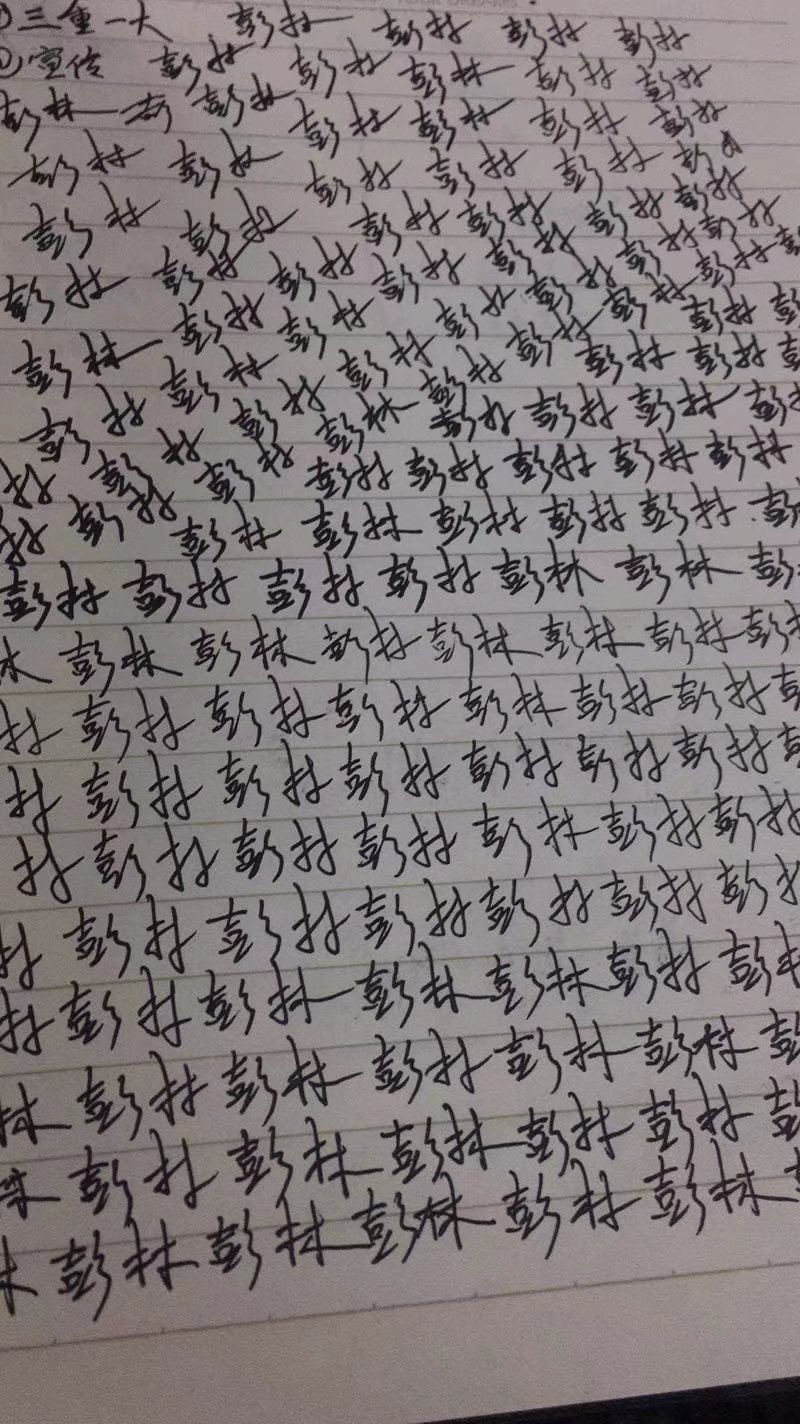 ①三重一大 彭林 彭林 彭林 彭林
②宣传 彭林 彭林 彭林 彭林 彭林
彭林 彭林 彭林 彭林 彭林 彭林
彭林 彭林 彭林 彭林 彭林 彭
彭林 彭林 彭林 彭林 彭林 彭林
彭林 彭林 彭林 彭林 彭林 彭林
彭林 彭林 彭林 彭林 彭林 彭林 彭林
彭林 彭林 彭林 彭林 彭林 彭林 彭林
林 彭林 彭林 彭林 彭林 彭林 彭林 彭林
林 彭林 彭林 彭林 彭林 彭林 彭林
彭林 彭林 彭林 彭林 彭林 彭
彭林 彭林 彭林 彭林 彭林 彭林 彭
林 彭林 彭林 彭林 彭林 彭林 彭林 彭林
林 彭林 彭林 彭林 彭林 彭林 彭林 彭
林 彭林 彭林 彭林 彭林 彭林 彭林 彭
林 彭林 彭林 彭林 彭林 彭林 彭林
林 彭林 彭林 彭林 彭林 彭林 彭林
林 彭林 彭林 彭林 彭林 彭林 彭林
林 彭林 彭林 彭林 彭林 彭林 彭
林 彭林 彭林 彭林 彭林 彭林 彭
林 彭林 彭林 彭林 彭林 彭林